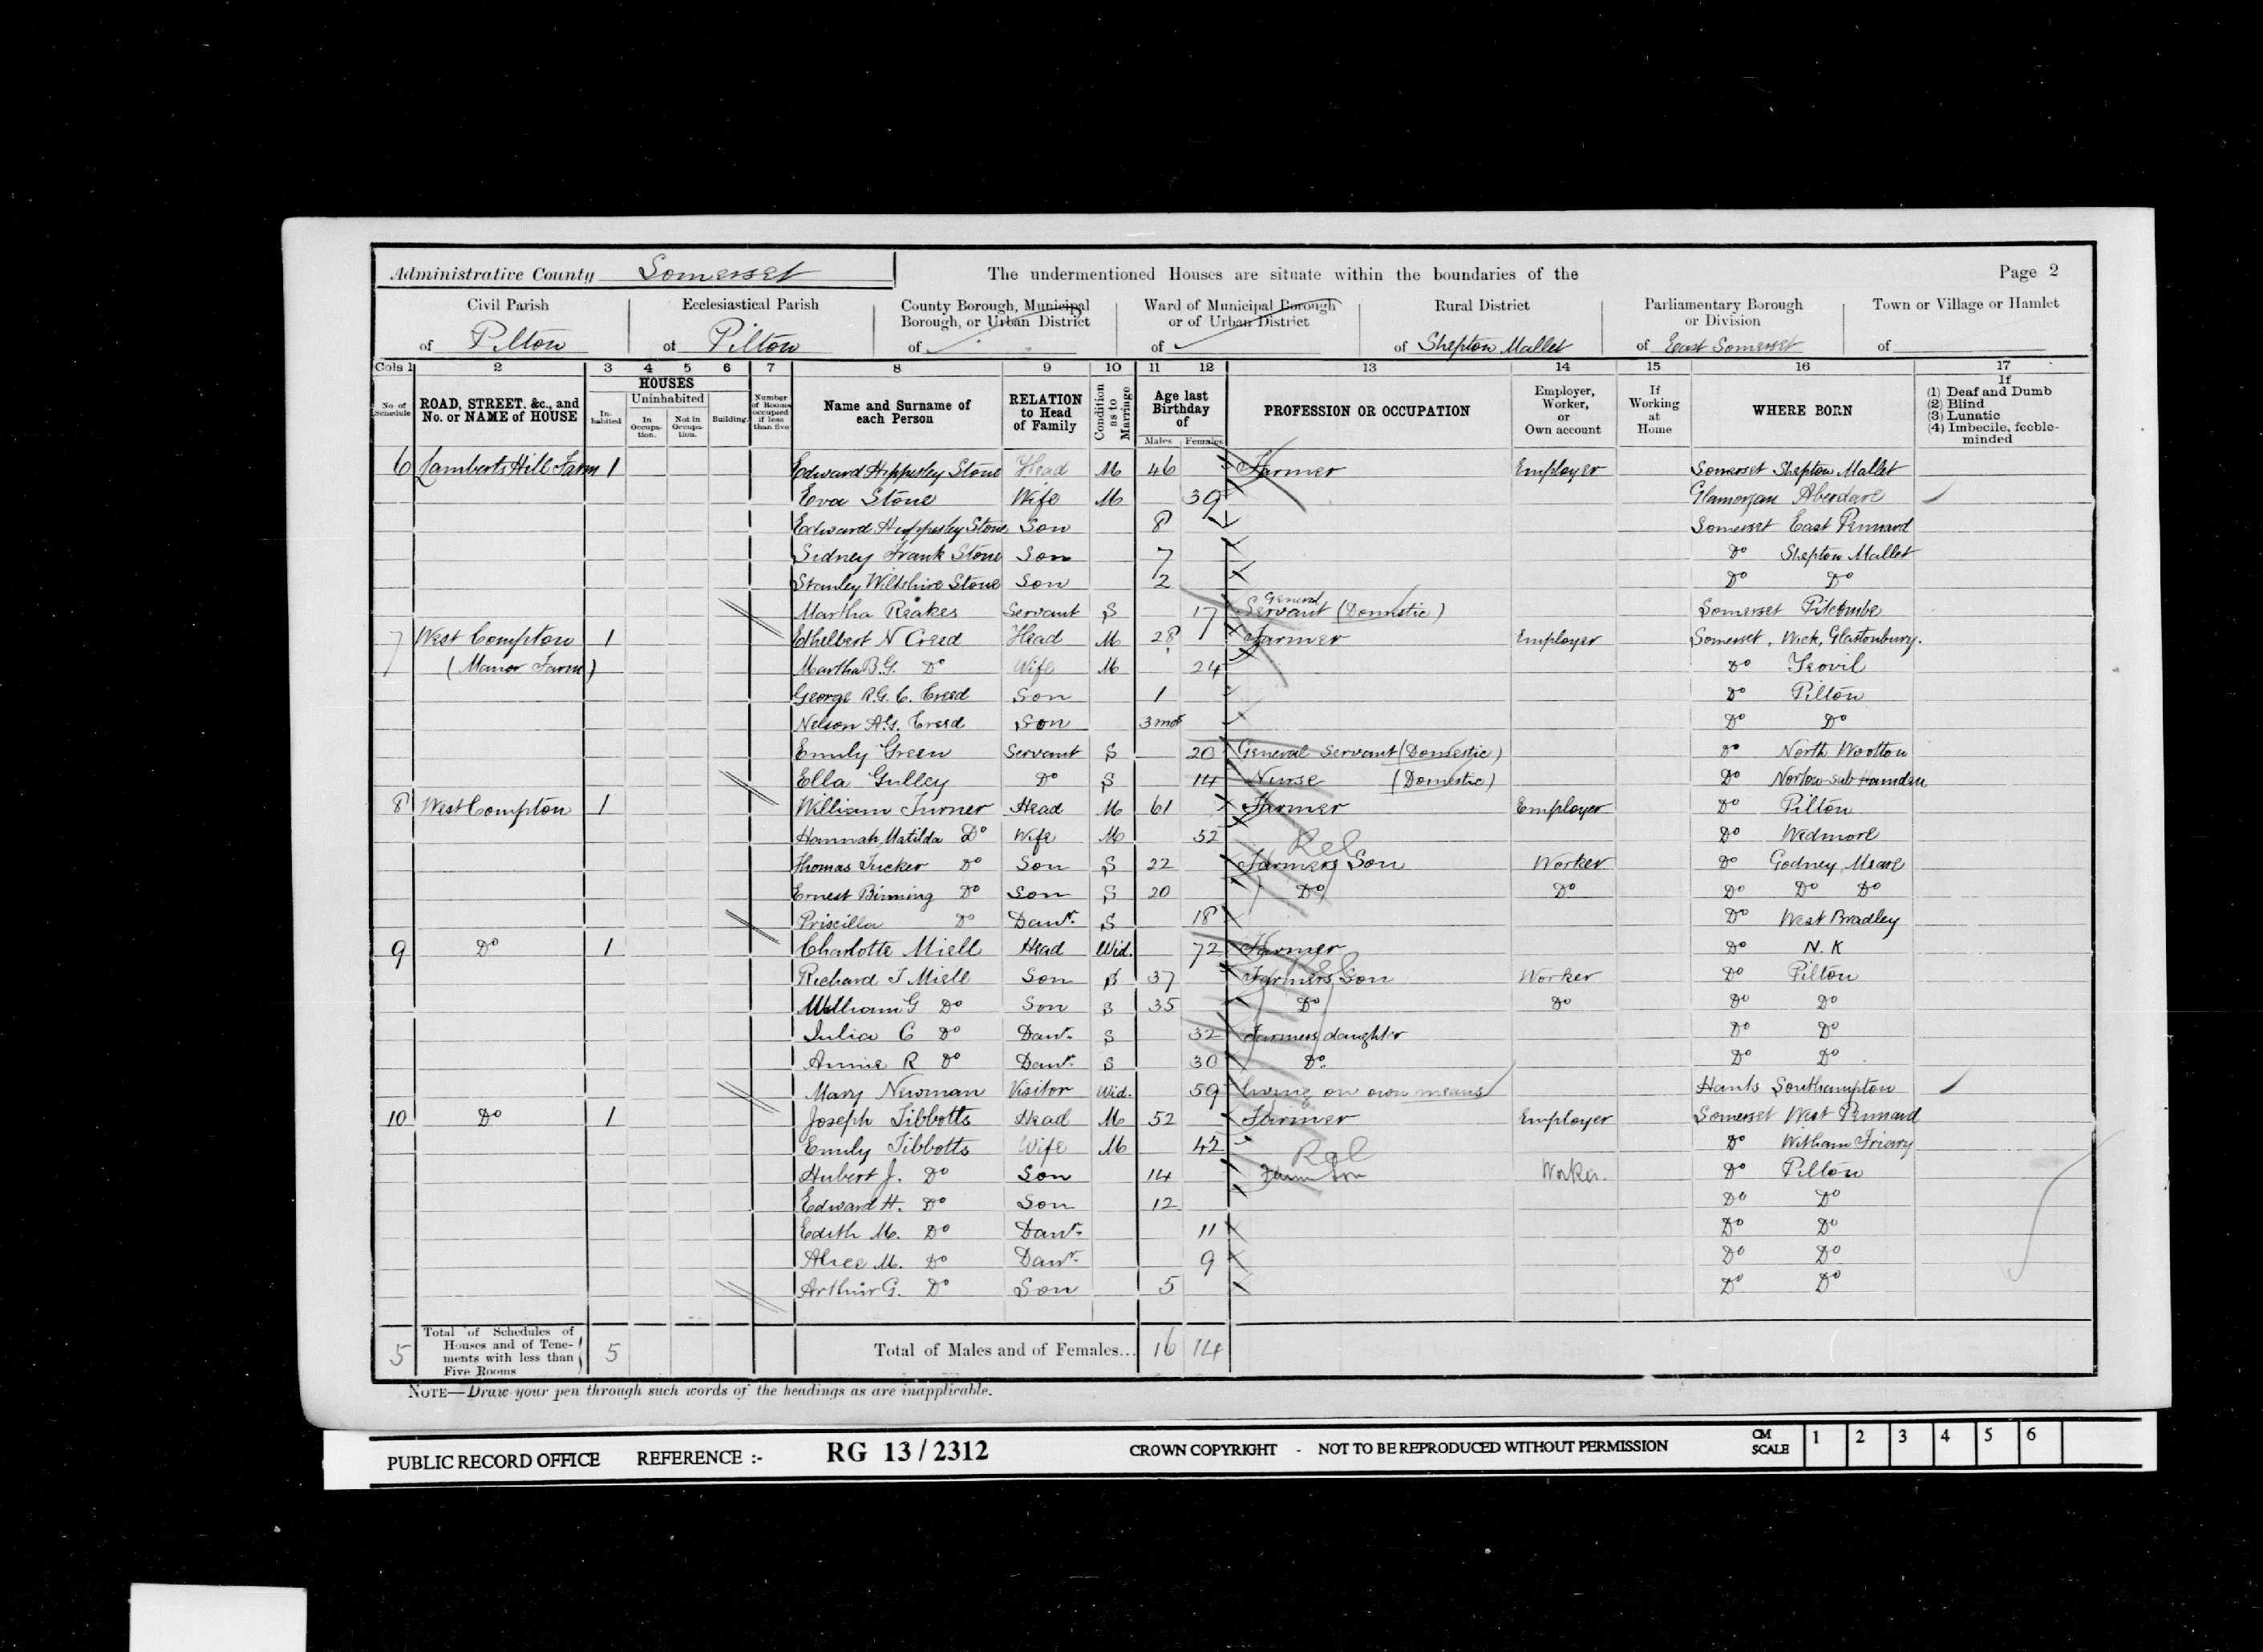 Administrative County Somerset The undermentioned Houses are situate within the boundaries of the Page 2
Civil Parish of Pilton
Ecclesiastical Parish of Pilton
County Borough, Municipal Borough, or Urban District of
Ward of Municipal Borough or of Urban District of
Rural District of Shepton Mallet
Parliamentary Borough or Division of East Somerset
Town or Village or Hamlet of
Cols 1 2 3 4 5 6 7 8 9 10 11 12 13 14 15 16 17
No of Schedule
ROAD, STREET, &c., and No. or NAME of HOUSE
HOUSES
Inhabited
Uninhabited
In Occupation.
Not in Occupation.
Building
Number of Rooms occupied if less than five
Name and Surname of each Person
RELATION to Head of Family
Condition as to Marriage
Age last Birthday of
Males Females
PROFESSION OR OCCUPATION
Employer, Worker, or Own account
If Working at Home
WHERE BORN
If (1) Deaf and Dumb
(2) Blind
(3) Lunatic
(4) Imbecile, feeble-minded
6 Lamberts Hill Farm 1 Edward Hippisley Stone Head M 46 Farmer Employer Somerset Shepton Mallet
Eva Stone Wife M 39 Glamorgan Aberdare
Edward Hippisley Stone Son 8 Somerset East Pennard
Sidney Frank Stone Son 7 Do Shepton Mallet
Stanley Wiltshire Stone Son 2 Do Do
Martha Reakes Servant S 17 General Servant (Domestic) Somerset Pitcombe
7 West Compton 1 Ethelbert N Creed Head M 28 Farmer Employer Somerset, Wick, Glastonbury.
(Manor Farm) Martha B.G. Do Wife M 24 Do Yeovil
George R.G.C. Creed Son 1 Do Pilton
Nelson A.G. Creed Son 3 mos Do Do
Emily Green Servant S 20 General Servant (Domestic) Do North Wootton
Ella Gulley Do S 14 Nurse (Domestic) Do Norton-sub Hamdon
8 West Compton 1 William Turner Head M 61 Farmer Employer Do Pilton
Hannah Matilda Do Wife M 52 Rel Do Wedmore
Thomas Tucker Do Son S 22 Farmers Son Worker Do Godney, Meare
Ernest Binning Do Son S 20 Do Do Do Do Do
Priscilla Do Daur. S 18 Do West Bradley
9 Do 1 Charlotte Miell Head Wid. 72 Farmer Do N.K
Richard J Miell Son S 37 Farmers Son Worker Do Pilton
William G Do Son S 35 Do Do Do Do
Julia C Do Daur. S 32 Farmers daughter Do Do
Annie R Do Daur. S 30 Do. Do Do
Mary Newman Visitor Wid. 59 Living on own means Hants Southampton
10 Do 1 Joseph Tibbotts Head M 52 Farmer Employer Somerset West Pennard
Emily Tibbotts Wife M 42 Rel Do Witham Friary
Hubert J. Do Son 14 Farm Son Worker. Do Pilton
Edward H. Do Son 12 Do Do
Edith M. Do Daur. 11 Do Do
Alice M. Do Daur. 9 Do Do
Arthur G. Do Son 5 Do Do
5 Total of Schedules of Houses and of Tenements with less than Five Rooms 5 Total of Males and of Females... 16 14
NOTE—Draw your pen through such words of the headings as are inapplicable.
PUBLIC RECORD OFFICE REFERENCE :- RG 13 / 2312 CROWN COPYRIGHT - NOT TO BE REPRODUCED WITHOUT PERMISSION CM SCALE 1 2 3 4 5 6